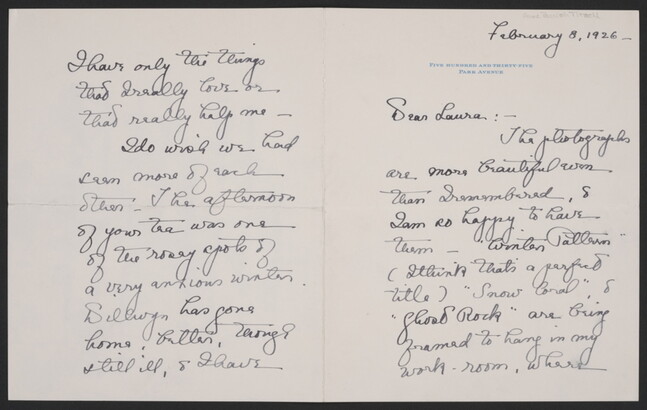 February 8, 1926 –
FIVE HUNDRED AND THIRTY FIVE
PARK AVENUE
Dear Laura: –
The photographs
are more beautiful even
than I remembered, &
I am so happy to have
them – "Winter Pattern"
(I think that's a perfect
title) "Snow Coral", &
"Ghost Rock" are being
framed to hang in my
work-room, where
I have only the things
that I really love or
that really help me –
I do wish we had
seen more of each
other – The afternoon
of your tea was one
of the rosey spots of
a very anxious winter.
Dillwyn has gone
home, better, though
still ill, & I have